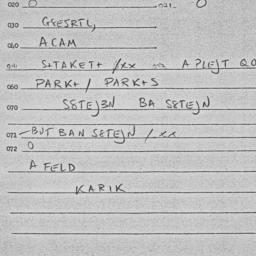 020 0
030 GEESRTL,
040 ACAM
S+TAKET+ /xx A PLEJT QO
060 PARK+/ PARK+S
070 S8TEJ3N BA S8TEJN
071 -BUT BAN S8TEJN /xx
072 0
A FELD
KARIK